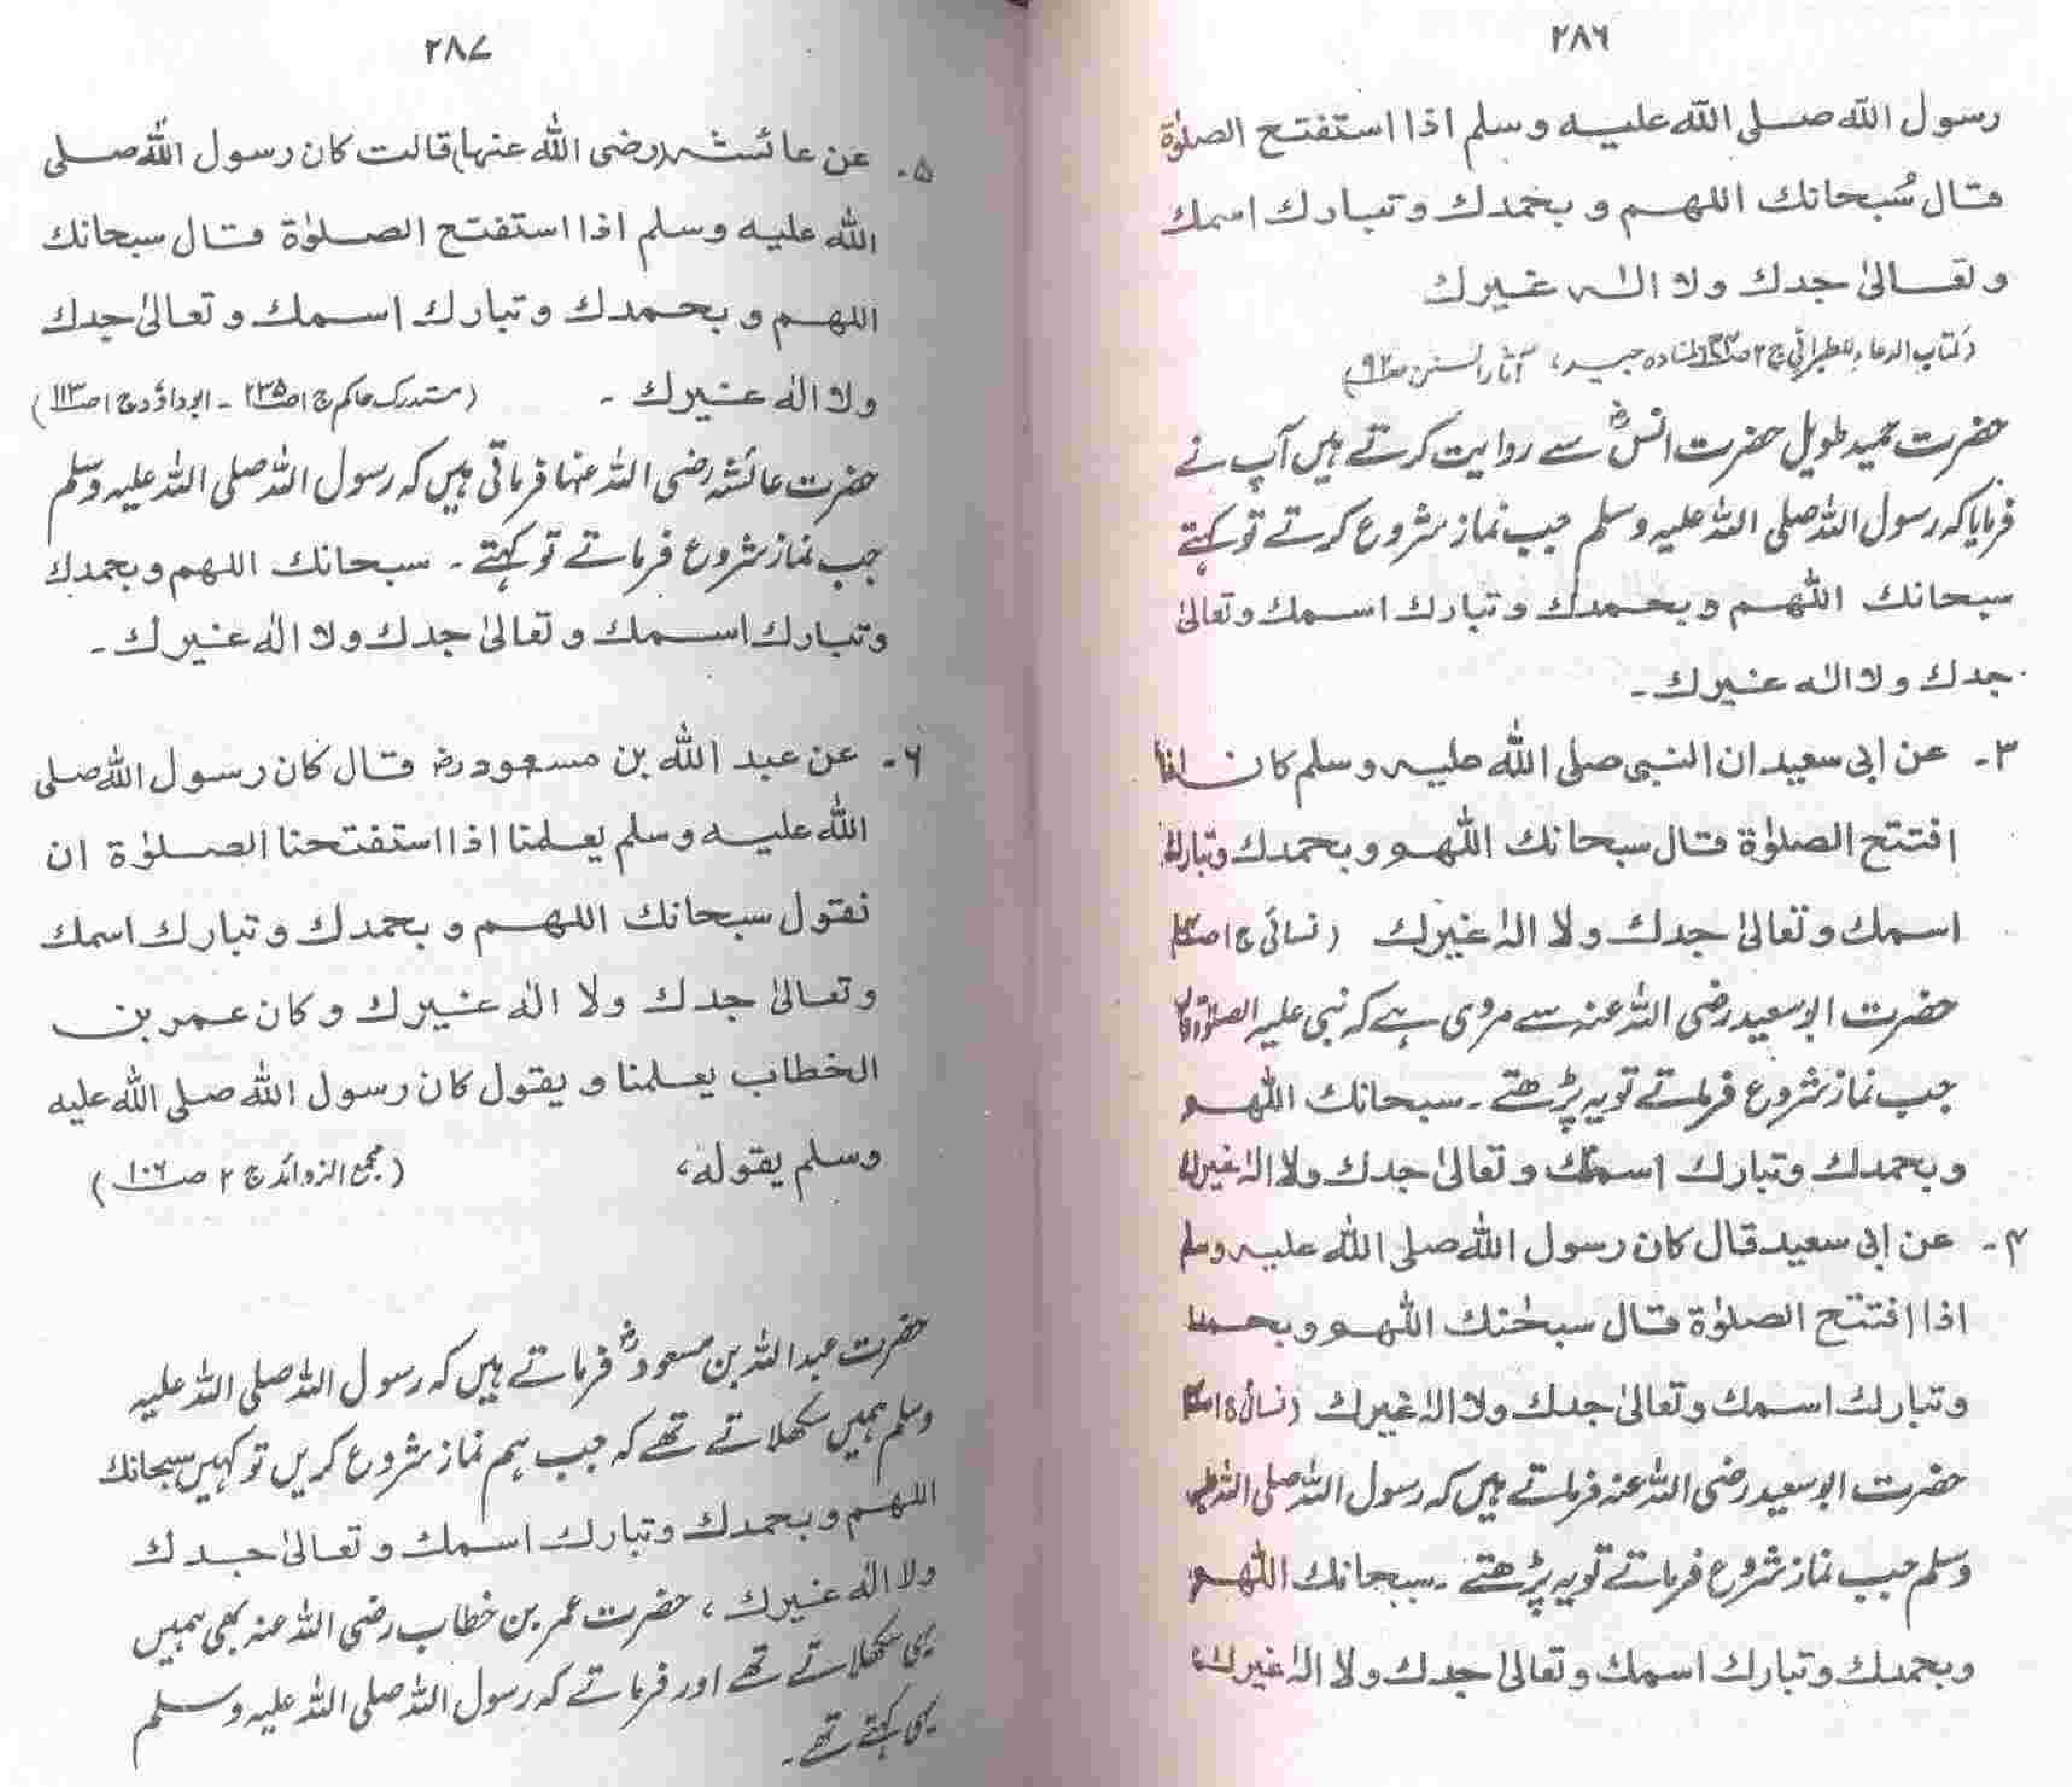 ۲۸۶
رسول اللّٰه صلى اللّٰه عليه وسلم اذا استفتح الصلوٰة
قال سُبحانك اللهم و بحمدك وتبارك اسمك
وتعالىٰ جدك ولا الٰه غيرك
(کتاب الدعاء للطبرانی ج ۲ اسناده جید، آثار السنن ص۹۲)
حضرت حمید طویل حضرت انسؓ سے روایت کرتے ہیں آپ نے
فرمایا کہ رسول اللہ صلی اللہ علیہ وسلم جب نماز شروع کرتے تو کہتے
سبحانك اللهم وبحمدك وتبارك اسمك وتعالىٰ
جدك ولا الٰه غيرك۔
۳۔ عن ابى سعيد ان النبى صلى الله عليه وسلم كان اذا
افتتح الصلوٰة قال سبحانك اللهم وبحمدك وتبارك
اسمك وتعالىٰ جدك ولا الٰه غيرك (نسائی ج۱
حضرت ابو سعید رضی اللہ عنہ سے مروی ہے کہ نبی علیہ الصلوٰة
جب نماز شروع فرماتے تو یہ پڑھتے۔ سبحانك اللهم
وبحمدك وتبارك اسمك وتعالىٰ جدك ولا الٰه غيرك
۴۔ عن ابى سعيد قال كان رسول الله صلى الله عليه وسلم
اذا افتتح الصلوٰة قال سبحٰنك اللهم وبحمدك
وتبارك اسمك وتعالىٰ جدك ولا الٰه غيرك (نسائی ج۱
حضرت ابو سعید رضی اللہ عنہ فرماتے ہیں کہ رسول اللہ صلی اللہ علیہ
وسلم جب نماز شروع فرماتے تو یہ پڑھتے۔ سبحانك اللهم
وبحمدك وتبارك اسمك وتعالىٰ جدك ولا الٰه غيرك
۲۸۷
۵۔ عن عائشہ (رضى الله عنها) قالت كان رسول الله صلى
الله عليه وسلم اذا استفتح الصلوٰة قال سبحانك
اللهم و بحمدك وتبارك اسمك وتعالىٰ جدك
ولا الٰه غيرك ۔ (مستدرک حاکم ج۱ ص۲۳۵ ۔ ابوداؤد ج۱ ص۱۱۳)
حضرت عائشہ رضی اللہ عنہا فرماتی ہیں کہ رسول اللہ صلی اللہ علیہ وسلم
جب نماز شروع فرماتے تو کہتے ۔ سبحانك اللهم وبحمدك
وتبارك اسمك وتعالىٰ جدك ولا الٰه غيرك ۔
۶۔ عن عبد الله بن مسعودؓ قال كان رسول الله صلى
الله عليه وسلم يعلمنا اذا استفتحنا الصلوٰة ان
نقول سبحانك اللهم و بحمدك وتبارك اسمك
وتعالىٰ جدك ولا الٰه غيرك وكان عمر بن
الخطاب يعلمنا ويقول كان رسول الله صلى الله عليه
وسلم يقوله، (مجمع الزوائد ج ۲ ص۱۰۶)
حضرت عبد اللہ بن مسعودؓ فرماتے ہیں کہ رسول اللہ صلی اللہ علیہ
وسلم ہمیں سکھلاتے تھے کہ جب ہم نماز شروع کریں تو کہیں سبحانك
اللهم وبحمدك وتبارك اسمك وتعالىٰ جدك
ولا الٰه غيرك، حضرت عمر بن خطاب رضی اللہ عنہ بھی ہمیں
یہی سکھلاتے تھے اور فرماتے کہ رسول اللہ صلی اللہ علیہ وسلم
یہی کہتے تھے ۔